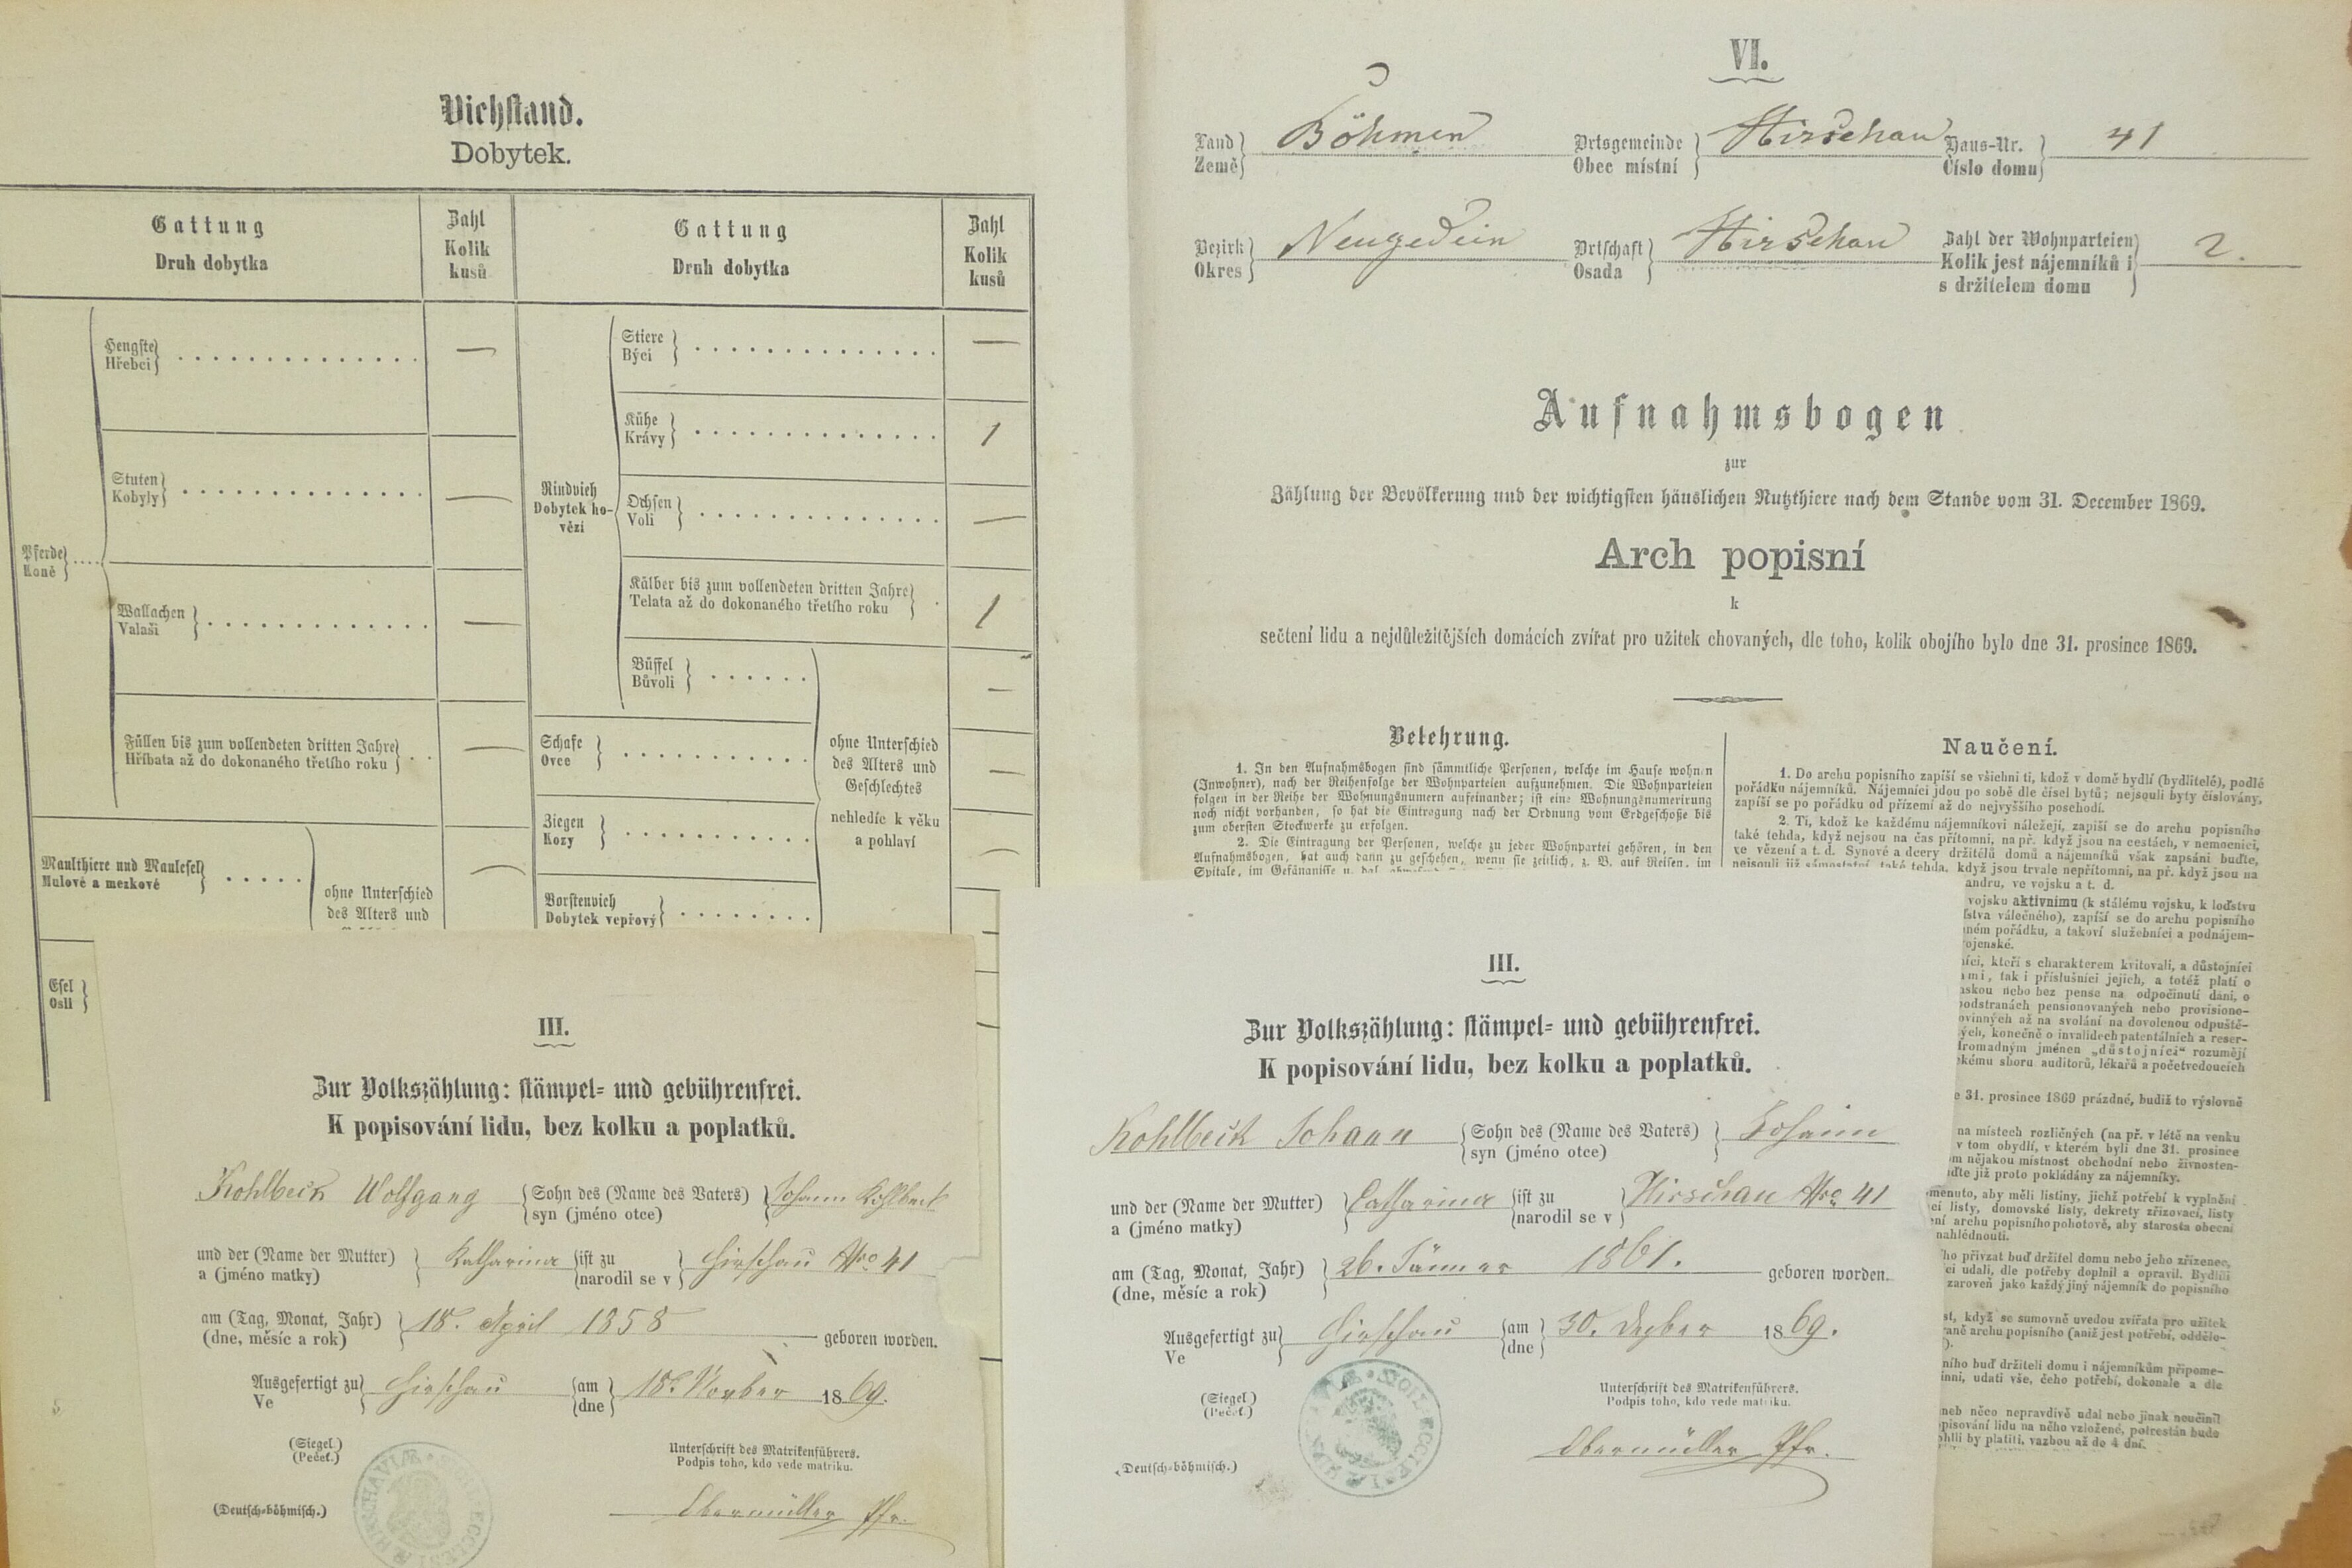 Viehstand.
Dobytek.
Gattung
Druh dobytka
Zahl
Kolik
kusů
Gattung
Druh dobytka
Zahl
Kolik
kusů
Pferde
Koně
Hengste
Hřebci
—
Stuten
Kobyly
—
Wallachen
Valaši
—
Füllen bis zum vollendeten dritten Jahre
Hříbata až do dokonaného třetího roku
—
Maulthiere und Maulesel
Mulové a mezkové
ohne Unterschied
des Alters und
—
Esel
Osli
Rindvieh
Dobytek ho-
vězí
Stiere
Býci
—
Kühe
Krávy
1
Ochsen
Voli
—
Kälber bis zum vollendeten dritten Jahre
Telata až do dokonaného třetího roku
1
Büffel
Bůvoli
—
Schafe
Ovce
—
Ziegen
Kozy
—
Borstenvieh
Dobytek vepřový
ohne Unterschied
des Alters und
Geschlechtes
nehledíc k věku
a pohlaví
VI.
Land
Země
Böhmen
Ortsgemeinde
Obec místní
Hirschau
Haus-Nr.
Číslo domu
41
Bezirk
Okres
Neugedein
Ortschaft
Osada
Hirschau
Zahl der Wohnparteien
Kolik jest nájemníků i
s držitelem domu
2.
Aufnahmsbogen
zur
Zählung der Bevölkerung und der wichtigsten häuslichen Nutzthiere nach dem Stande vom 31. December 1869.
Arch popisní
k
sečtení lidu a nejdůležitějších domácích zvířat pro užitek chovaných, dle toho, kolik obojího bylo dne 31. prosince 1869.
Belehrung.
1. In den Aufnahmsbogen sind sämmtliche Personen, welche im Hause wohnen
(Inwohner), nach der Reihenfolge der Wohnparteien aufzunehmen. Die Wohnparteien
folgen in der Reihe der Wohnungsnumern aufeinander; ist eine Wohnungsnumerirung
noch nicht vorhanden, so hat die Eintragung nach der Ordnung vom Erdgeschoße bis
zum obersten Stockwerke zu erfolgen.
2. Die Eintragung der Personen, welche zu jeder Wohnpartei gehören, in den
Aufnahmsbogen, hat auch dann zu geschehen, wenn sie zeitlich, z. B. auf Reisen, im
Spitale, im Gefängnisse u. dgl.
Naučení.
1. Do archu popisního zapíší se všichni ti, kdož v domě bydlí (bydlitelé), podlé
pořádku nájemníků. Nájemníci jdou po sobě dle čísel bytů; nejsouli byty číslovány,
zapíší se po pořádku od přízemí až do nejvyššího poschodí.
2. Ti, kdož ke každému nájemníkovi náležejí, zapíší se do archu popisního
také tehda, když nejsou na čas přítomni, na př. když jsou na cestách, v nemocnici,
ve vězení a t. d. Synové a dcery držitélů domů a nájemníků však zapsáni buďte,
nejsouli již samostatni, také tehda, když jsou trvale nepřítomni, na př. když jsou na
andru, ve vojsku a t. d.
vojsku aktivnímu (k stálému vojsku, k loďstvu
ďstva válečného), zapíší se do archu popisního
ném pořádku, a takoví služebníci a podnájem-
ojenské.
níci, kteří s charakterem kvitovali, a důstojníci
ami, tak i příslušníci jejich, a totéž platí o
nskou nebo bez pense na odpočinutí dáni, o
podstranách pensionovaných nebo provisiono-
ovinných až na svolání na dovolenou odpuště-
ých, konečně o invalidech patentálních a reser-
hromadným jménen „důstojníci“ rozumějí
kému sboru auditorů, lékařů a početvedoucích
e 31. prosince 1869 prázdné, budiž to výslovně
na místech rozličných (na př. v létě na venku
v tom obydlí, v kterém byli dne 31. prosince
m nějakou místnost obchodní nebo živnosten-
uďte již proto pokládány za nájemníky.
menuto, aby měli listiny, jichž potřebí k vyplnění
cí listy, domovské listy, dekrety zřizovací, listy
ení archu popisního pohotově, aby starosta obecní
nahlédnouti.
ho přivzat buď držitel domu nebo jeho zřízenec,
ci udali, dle potřeby doplnil a opravil. Bydlíli
zároveň jako každý jiný nájemník do popisního
st, když se sumovně uvedou zvířata pro užitek
raně archu popisního (aniž jest potřebí, oddělo-
ního buď držiteli domu i nájemníkům připome-
inni, udati vše, čeho potřebí, dokonale a dle
neb něco nepravdivě udal nebo jinak neučinil
opisování lidu na něho vzložené, potrestán bude
ohli by platiti, vazbou až do 4 dní.
III.
Zur Volkszählung: stämpel- und gebührenfrei.
K popisování lidu, bez kolku a poplatků.
Kohlbeck Wolfgang
Sohn des (Name des Vaters)
syn (jméno otce)
Johann Kohlbeck
und der (Name der Mutter)
a (jméno matky)
Katharina
ist zu
narodil se v
Hirschau Nro 41
am (Tag, Monat, Jahr)
(dne, měsíc a rok)
18. April 1858
geboren worden.
Ausgefertigt zu
Ve
Hirschau
am
dne
18. Novber
1869.
(Siegel.)
(Pečeť.)
Unterschrift des Matrikenführers.
Podpis toho, kdo vede matriku.
(Deutsch-böhmisch.)
Obermüller Pfr.
III.
Zur Volkszählung: stämpel- und gebührenfrei.
K popisování lidu, bez kolku a poplatků.
Kohlbeck Johann
Sohn des (Name des Vaters)
syn (jméno otce)
Johann
und der (Name der Mutter)
a (jméno matky)
Catharina
ist zu
narodil se v
Hirschau Nro 41
am (Tag, Monat, Jahr)
(dne, měsíc a rok)
26. Jänner 1861.
geboren worden.
Ausgefertigt zu
Ve
Hirschau
am
dne
30. Dezber
1869.
(Siegel)
(Pečeť.)
Unterschrift des Matrikenführers.
Podpis toho, kdo vede matriku.
(Deutsch-böhmisch.)
Obermüller Pfr.